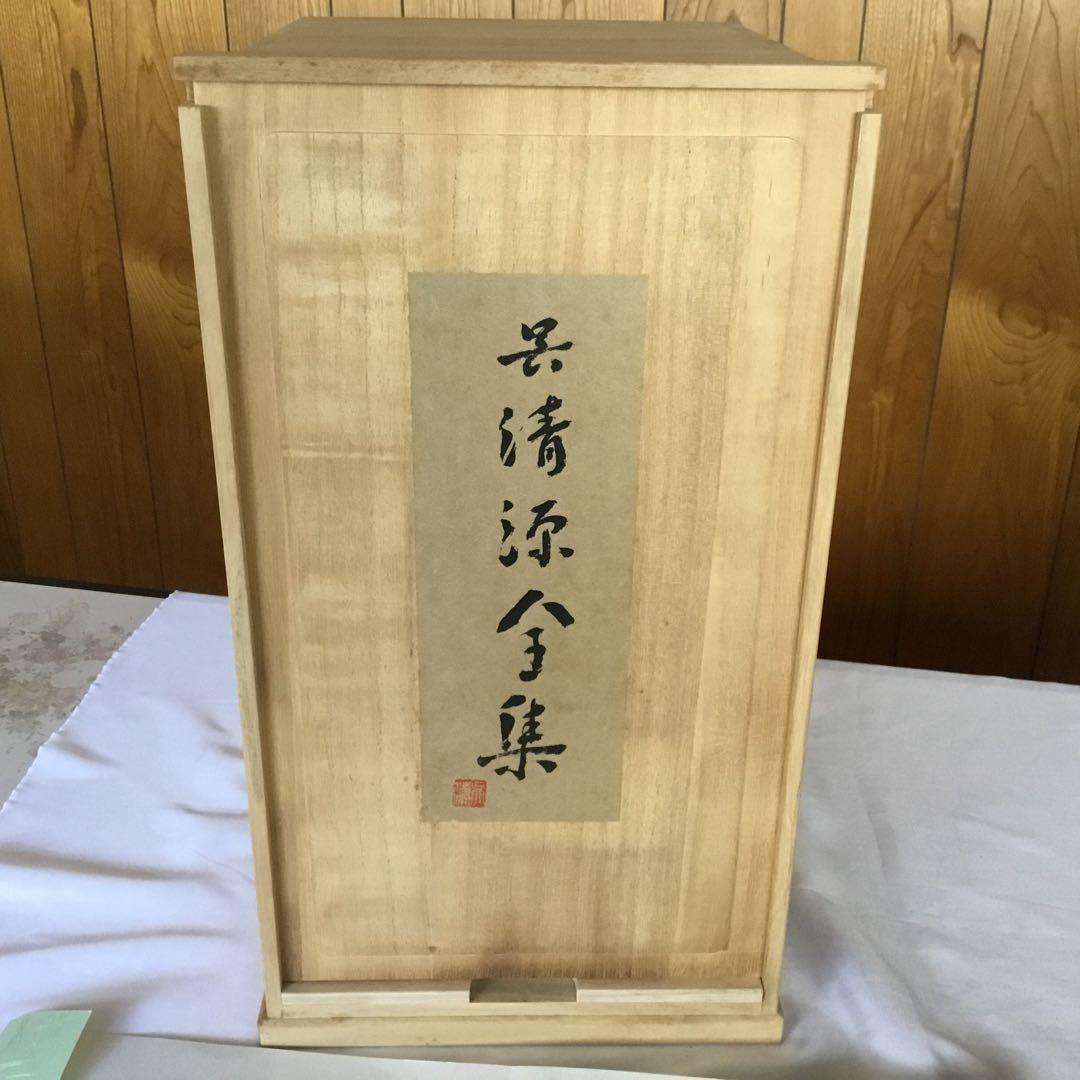 呉清源全集